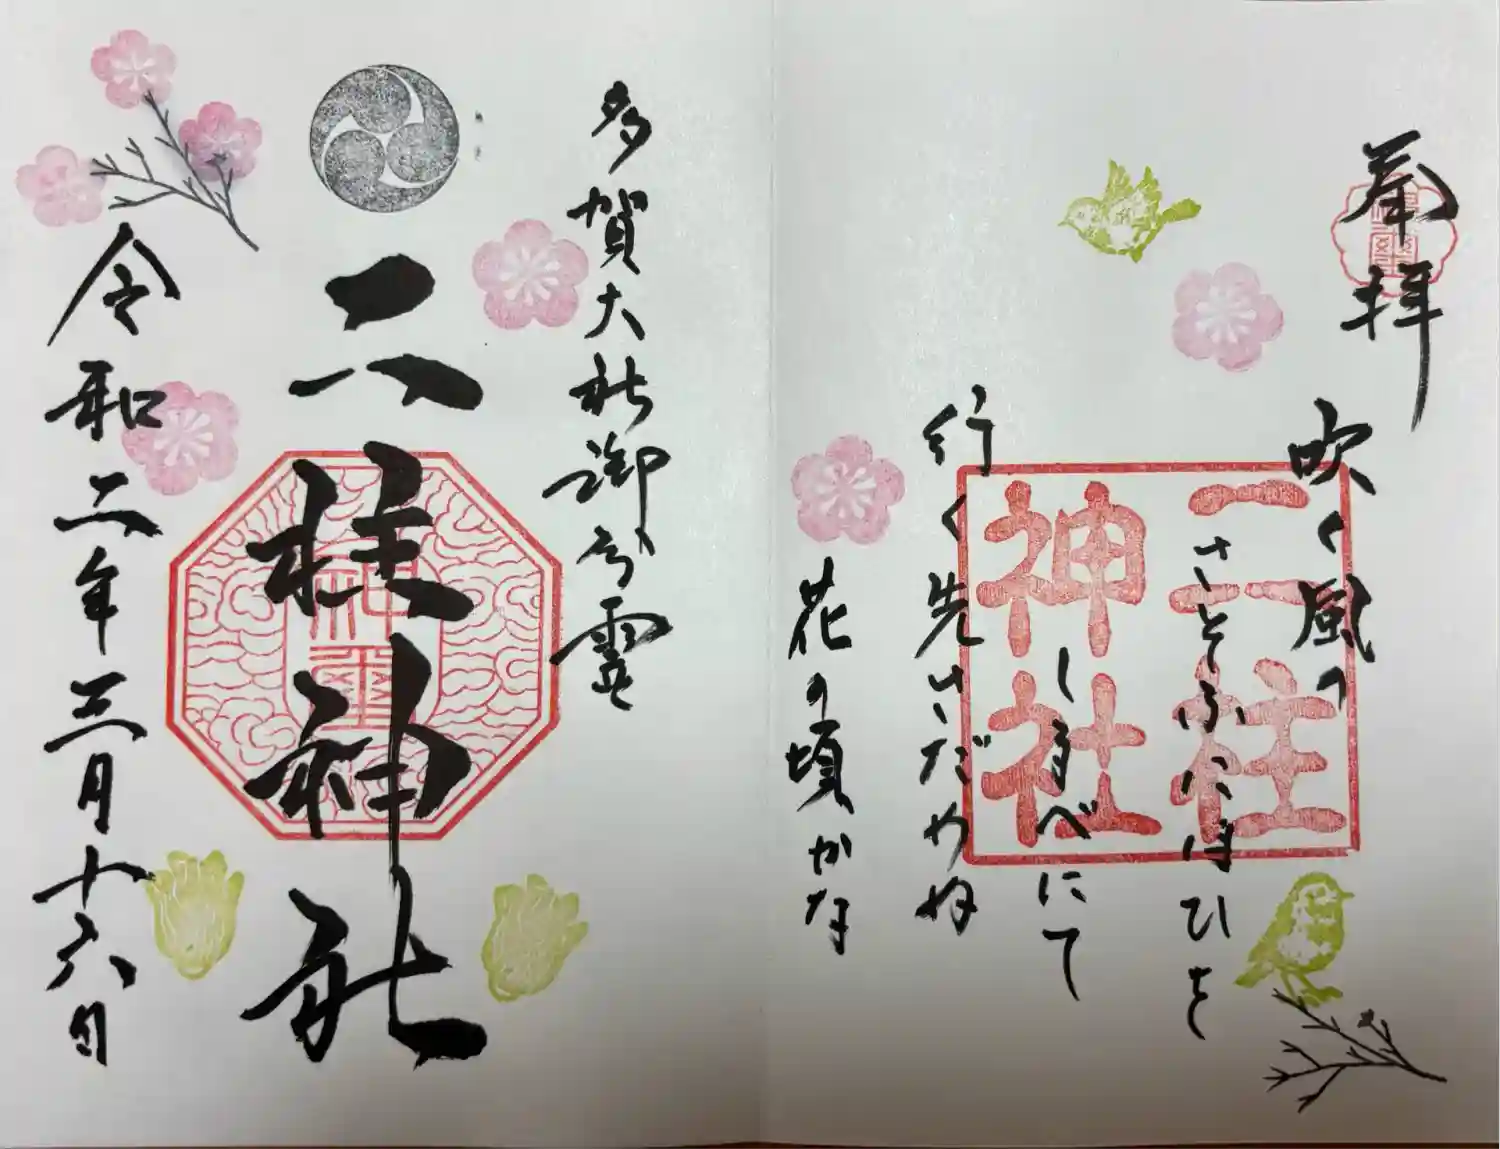 奉拝
吹く風の
さそふにほひを
しるべにて
行く先さだめぬ
花の頃かな
二柱
神社
多賀大社御分霊
二柱神社
令和二年三月十六日